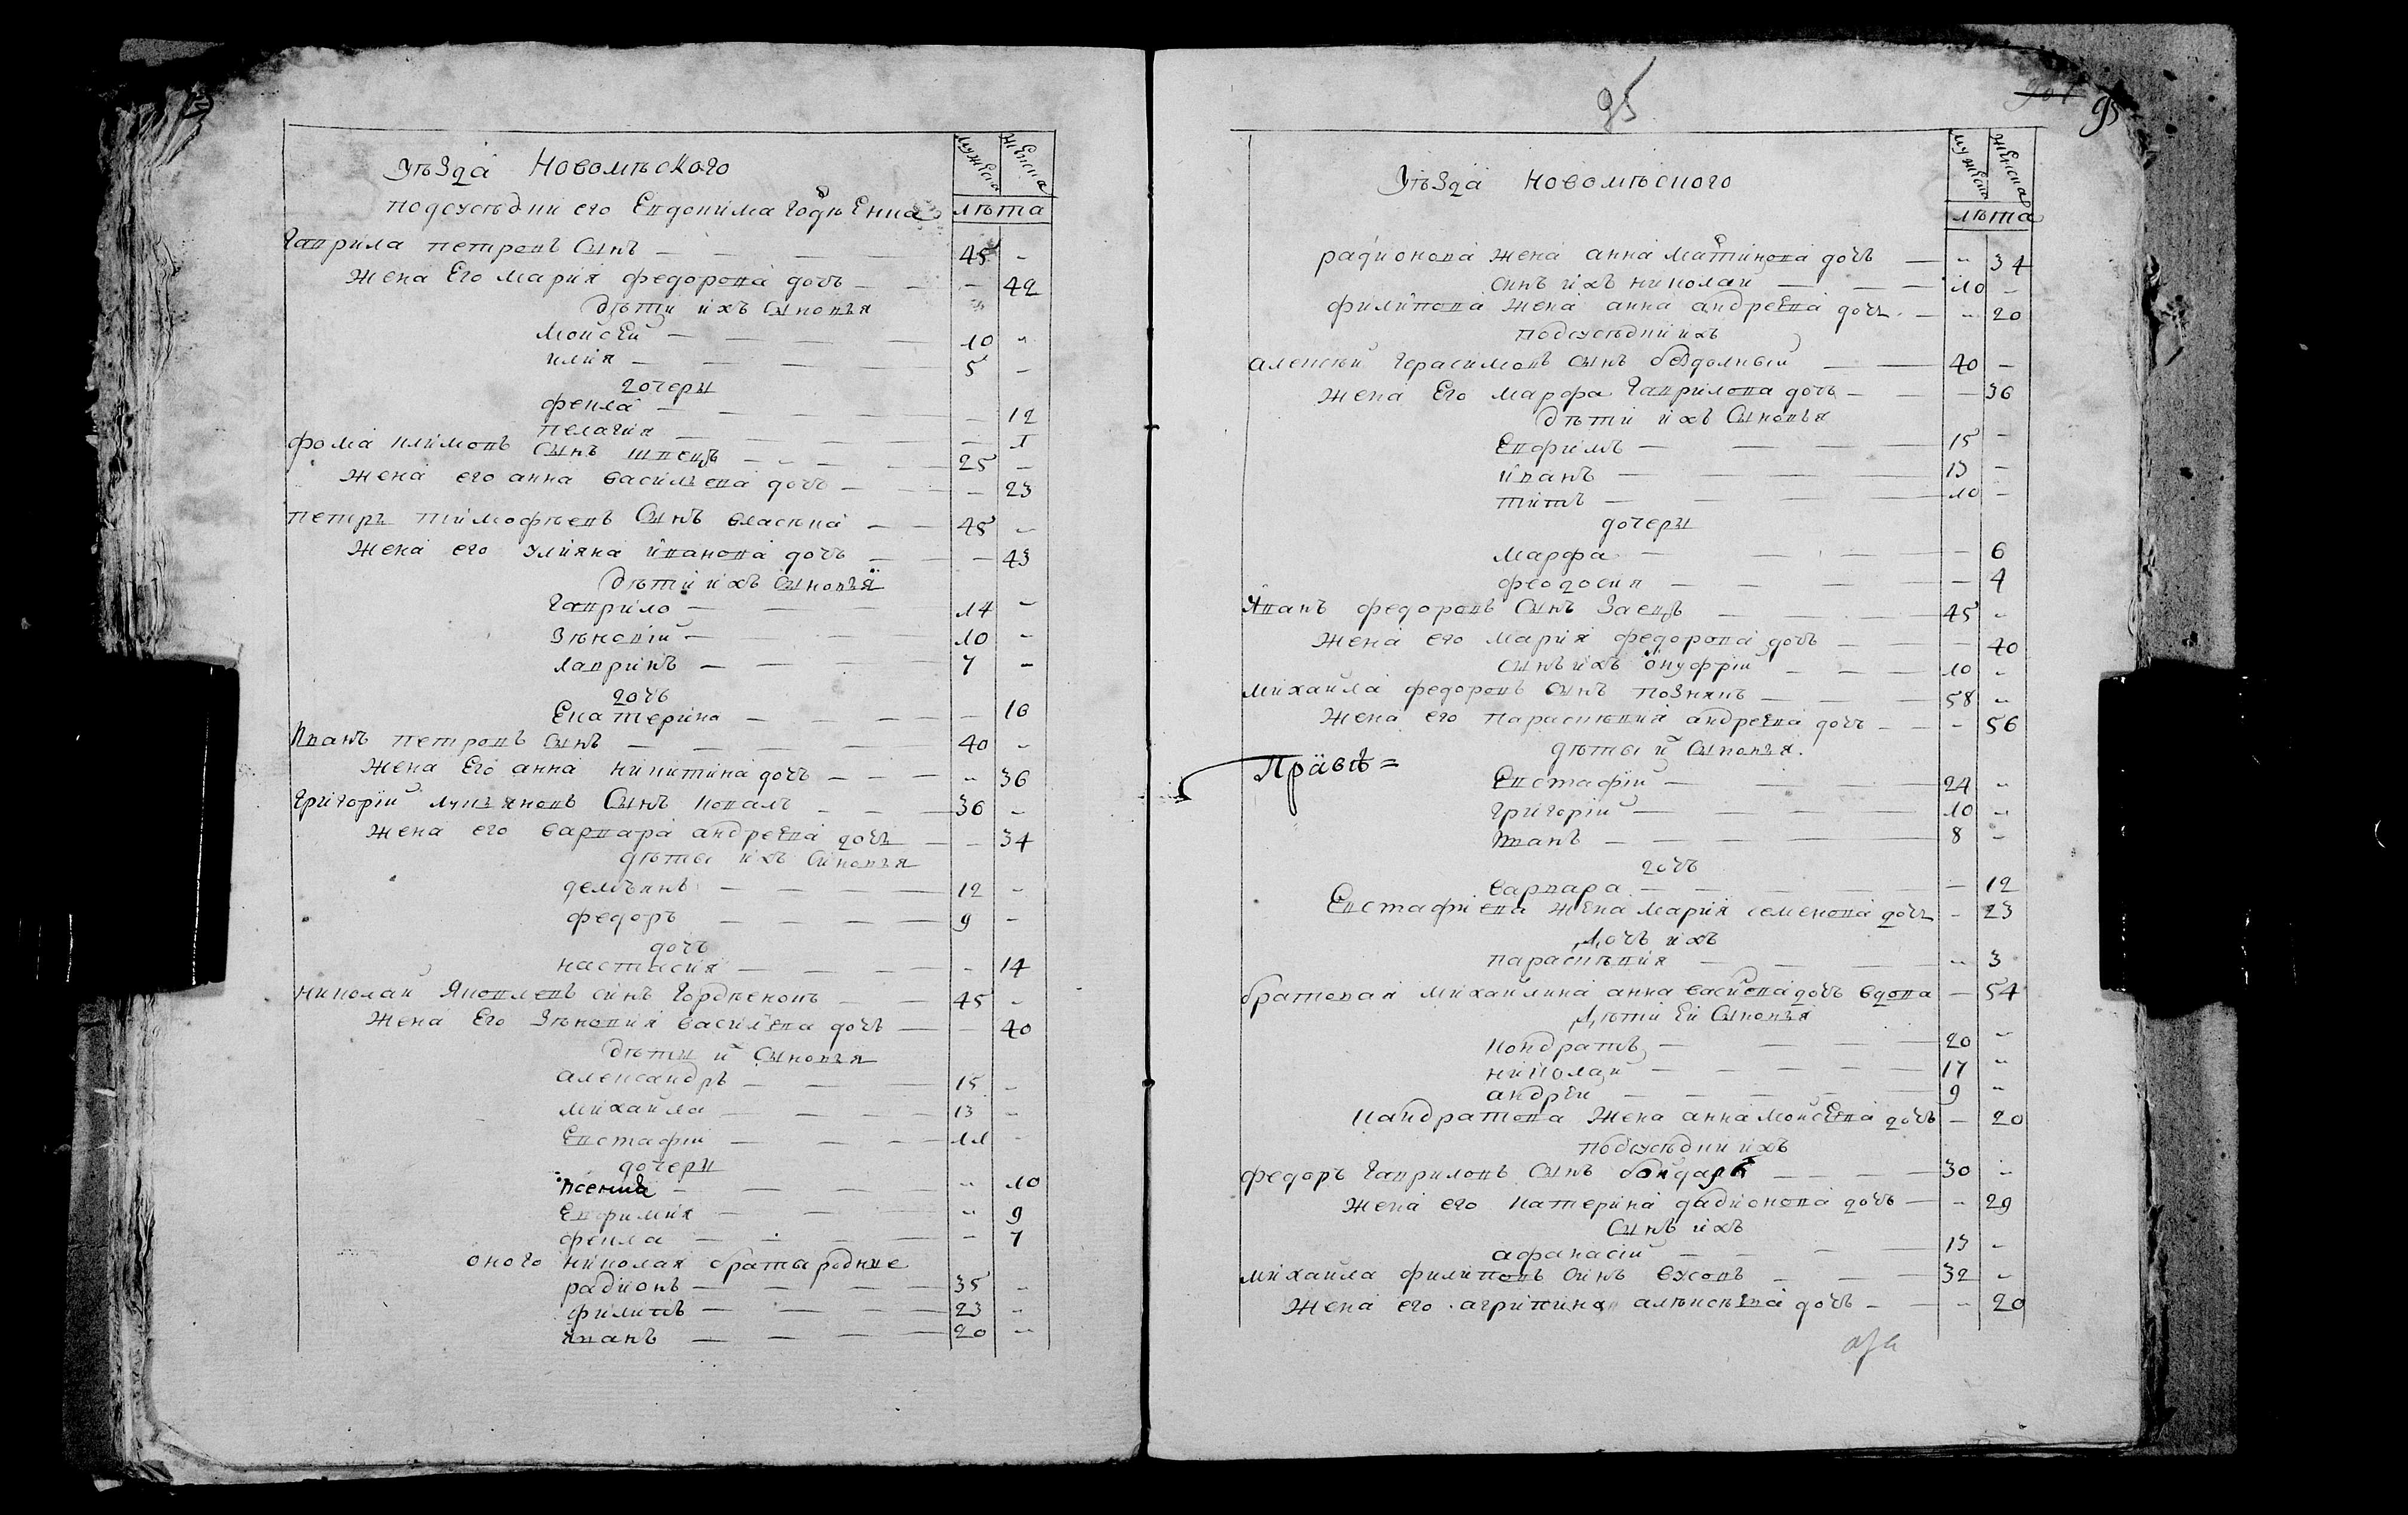 уѣзда Новомѣского
мужеска
женска
подсусѣдки его Евдокима Годѣенка
лѣта
Гаврила петровъ сынъ — 45 -
жена Его мария федорова дочь — - 42
дѣти ихъ сыновъя
мойсей — 10 -
илия — 5 -
дочери
фекла — - 12
пелагия — - 1
фома климовъ сынъ швецъ — 25 -
жена его анна василъева дочъ — - 23
петръ тимофѣевъ сынъ власюка — 45 -
жена его улияна иванова дочъ — - 43
дѣти ихъ сыновъя
Гаврило — 14 -
Зѣновій — 10 -
лаврикъ — 7 -
дочъ
Екатерина — - 16
Иванъ петровъ сынъ — 40 -
жена Его анна никитина дочъ — - 36
Григорій лукъяновъ сынъ ковалъ — 36 -
жена его варвара андреева дочъ — - 34
дѣты ихъ синовъя
демъянъ — 12 -
федоръ — 9 -
дочъ
настасия — - 14
николай Яковлевъ синъ Гордѣенокъ — 45 -
жена Его Зѣновия василъева дочъ — - 40
дѣти и сыновъя
александръ — 15 -
михайла — 13 -
Евстафій — 11 -
дочери
ксения — - 10
Евфимия — - 9
фекла — - 7
оного николая браты родние
радионъ — 35 -
филипъ — 23 -
иванъ — 20 -
95
95
уѣзда новомѣского
мужеска
женска
лѣта
радионова жена анна матвикова дочъ — - 34
синъ ихъ николай — 10 -
филипова жена анна андреева дочъ — - 20
подсусѣдки ихъ
алексѣй Герасимовъ сынъ бездолный — 40 -
жена Его марфа Гаврилова дочъ — - 36
дѣти ихъ сыновъя
Евфимъ — 15 -
иванъ — 13 -
титъ — 10 -
дочери
марфа — - 6
феодосия — - 4
Иванъ федоровъ сынъ Заецъ — 45 -
жена его мария федорова дочъ — - 40
сынъ ихъ онуфрій — 10 -
михайла федоровъ сынъ познякъ — 58 -
жена его парасковия андреева дочъ — - 56
дѣты и сыновъя
Правѣ =
Евстафій — 24 -
григорій — 10 -
иванъ — 8 -
дочъ
варвара — - 12
Евстафиева жена мария семенова дочъ - 23
Дочъ ихъ
парасковия — - 3
братовая михайлина анна василева дочъ вдова — 54
Дѣти Ей сыновъя
кондратъ — 20 -
николай — 17 -
андрей — 9 -
кандратова жена анна мойсеева дочъ — 20
подсусѣдки ихъ
федоръ Гавриловъ сынъ бондаръ — 30 -
жена его катерина радионова дочъ — - 29
сынъ ихъ
афанасій — 13 -
михайла филиповъ синъ вусовъ — 32 -
жена его агрипина алексѣева дочъ — - 20